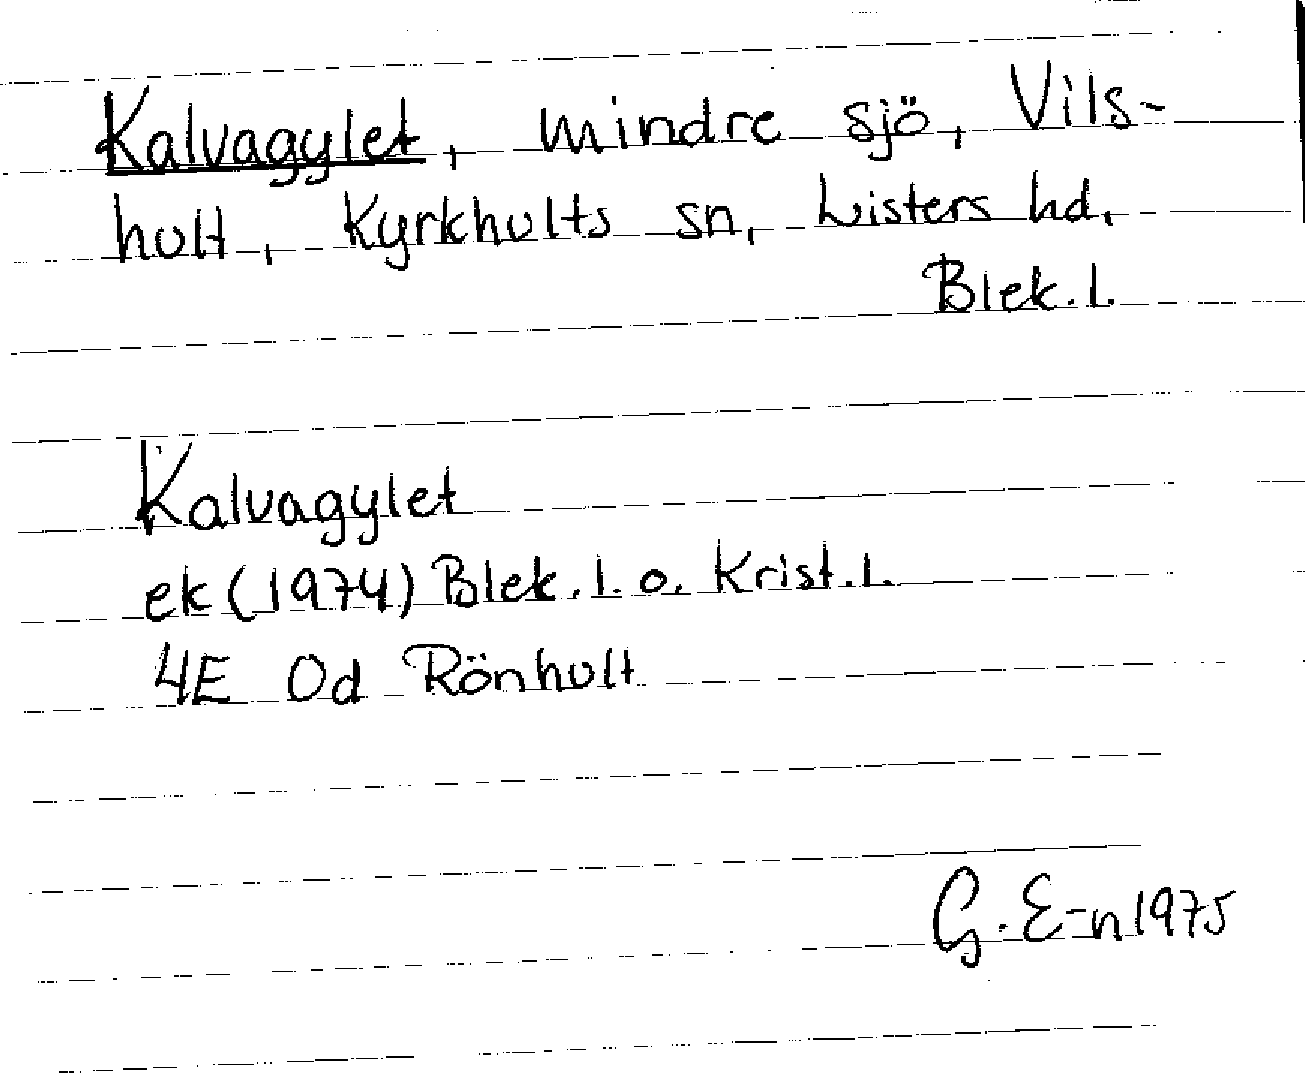 Kalvagylet, mindre sjö, Vils-
hult, Kyrkhults sn, Listers hd,
Blek. l.
Kalvagylet
ek (1974) Blek. l. o. Krist. l.
4E 0d Rönhult
G. E-n 1975